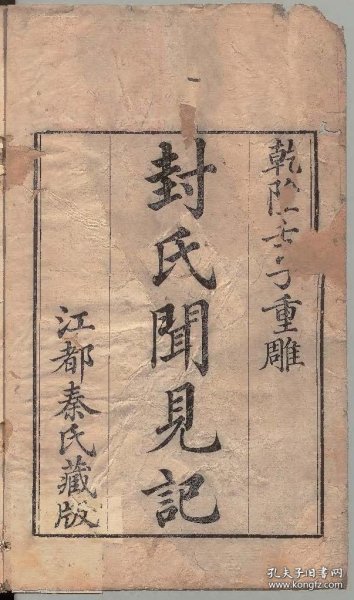 乾隆壬子重雕
封氏聞見記
江都秦氏藏版
孔夫子旧书网
kongfz.com